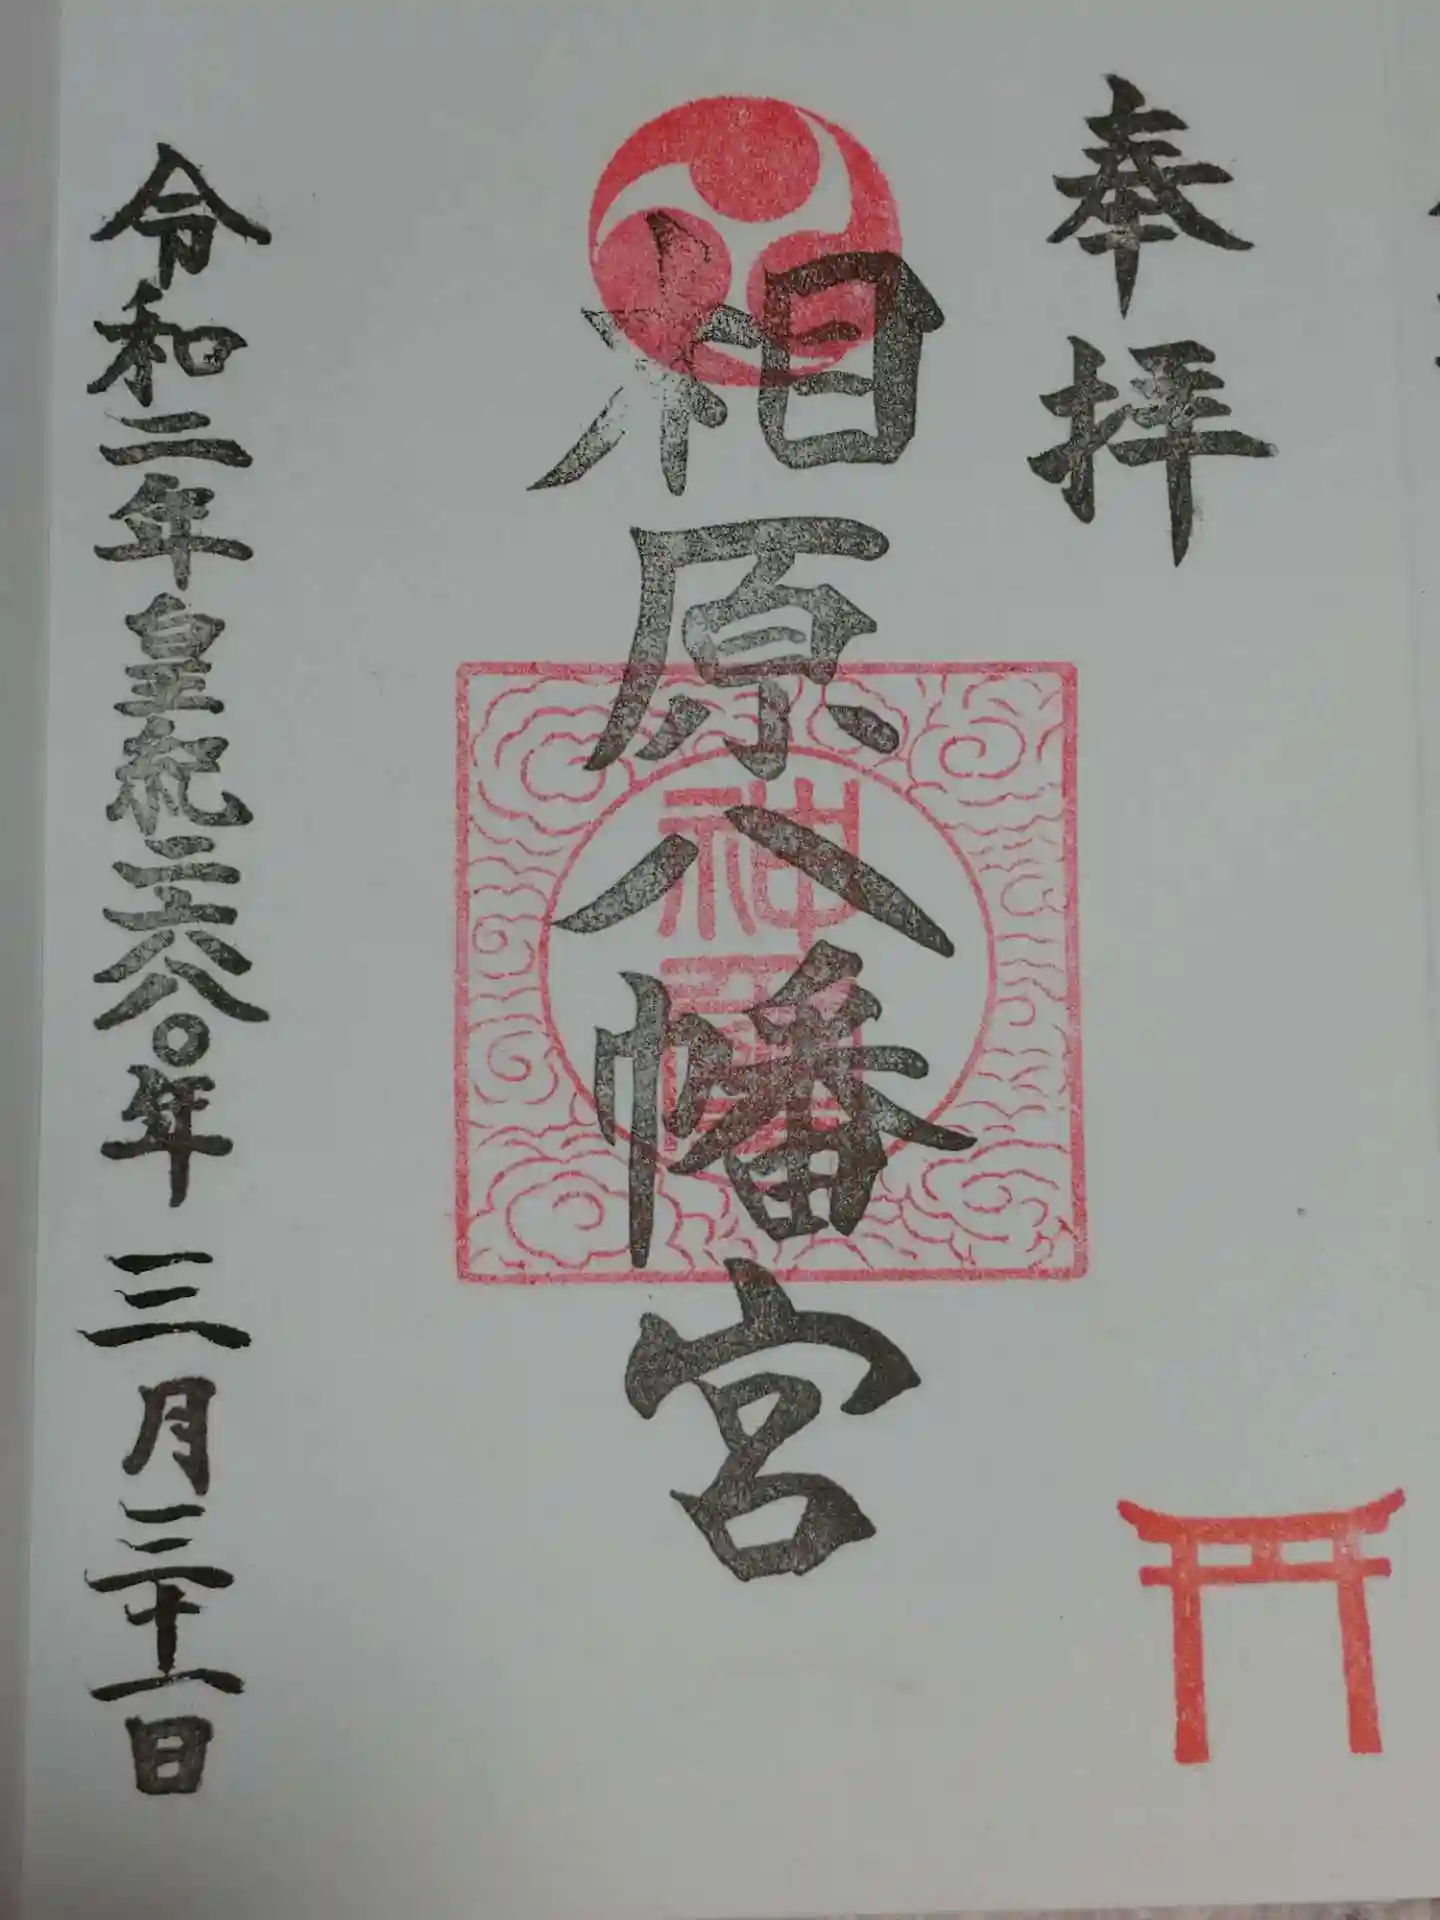 奉拝
相原八幡宮
令和二年皇紀二六八〇年 三月三十一日